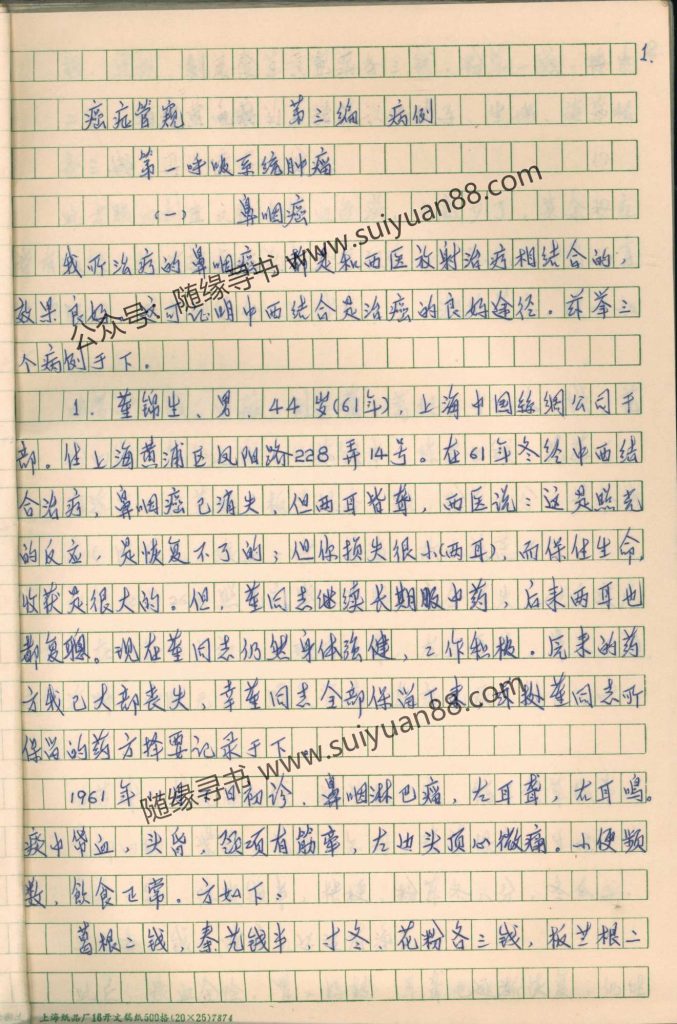 1.
癌症管窥 第三编 病例
第一呼吸系统肿瘤
(一) 鼻咽癌
我所治疗的鼻咽癌,都是和西医放射治疗相结合的,
效果良好,证明中西结合是治癌的良好途径。兹举三
个病例于下。
1. 董锦生、男、44岁(61年),上海中国絲綢公司干
部。住上海黄浦区凤阳路228弄14号。在61年冬经中西结
合治疗,鼻咽癌已消失,但两耳皆聋,西医说:这是照光
的反应,是恢复不了的;但你损失很小(两耳),而保住生命,
收获是很大的。但,董同志继续长期服中药,后来两耳也
都复聪。现在董同志仍然身体强健,工作积极。原来的药
方我已大部丧失,幸董同志全部保留下来,董同志所
保留的药方择要记录于下。
1961年 日初诊,鼻咽淋巴瘤,左耳聋,右耳鸣。
痰中带血,头昏,颈项有筋牵,左边头顶心微痛。小便频
数,飲食正常。方如下:
葛根二钱,秦艽钱半,寸冬、花粉各三钱,板兰根二
上海纸品厂16开文稿纸500格(20×25)7874
公众号:随缘寻书 www.suiyuan88.com
随缘寻书 www.suiyuan88.com